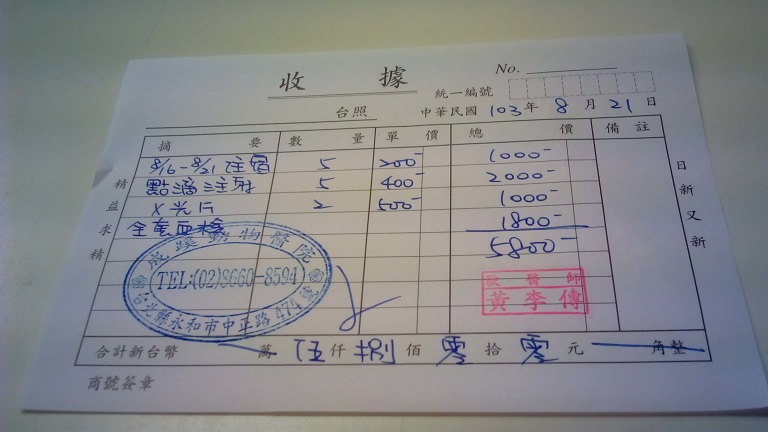 收據
No.
統一編號
台照 中華民國 103年 8月 21日
摘要 數量 單價 總價 備註
8/16-8/21 住宿 5 200- 1000-
點滴注射 5 400- 2000-
X光片 2 500- 1000-
全套血檢 1800-
5800-
成蹊動物醫院
TEL:(02)8660-8594
台北縣永和市中正路474號
獸醫師
黃李傳
精益求精
日新又新
合計新台幣 萬 伍仟捌佰零拾零元 角整
商號簽章